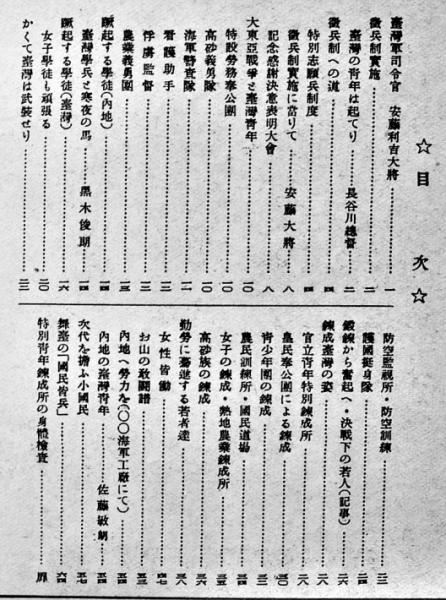 ☆目次☆
臺灣軍司令官 安藤利吉大將……一
徵兵制實施……二
臺灣の青年は起てり 長谷川總督……二
徵兵制への道……四
特別志願兵制度……四
徵兵制實施に當りて 安藤大將……八
記念感謝決意表明大會……八
大東亞戰爭と臺灣青年……一〇
特設勞務奉公團……一〇
高砂義勇隊……一〇
海軍警查隊……一一
看護助手……一二
俘虜監督……一三
農業義勇團……一三
蹶起する學徒(內地)……一四
臺灣學兵と寒夜の馬 黑木俊期……一四
蹶起する學徒(臺灣)……一六
女子學徒も頑張る……二〇
かくて臺灣は武裝せり……二二
防空監視所・防空訓練……二三
護國挺身隊……二四
鍛鍊から奮起へ・決戰下の若人(記事)……二六
鍊成臺灣の姿……二八
官立青年特別鍊成所……二八
皇民奉公團による鍊成……三〇
青少年團の鍊成……三一
農民訓練所・國民道場……三二
女子の鍊成・熱地農業鍊成所……三四
高砂族の鍊成……三六
勤勞に蹇進する若者達……三八
女性皆働……四二
お山の敢鬪譜……五三
內地へ勞力を(〇〇海軍工廠にて)……五四
內地の臺灣青年 佐藤敏朗……五四
次代を擔ふ小國民……五七
舞臺の「國民皆兵」……六四
特別青年鍊成所の身體檢查……扉